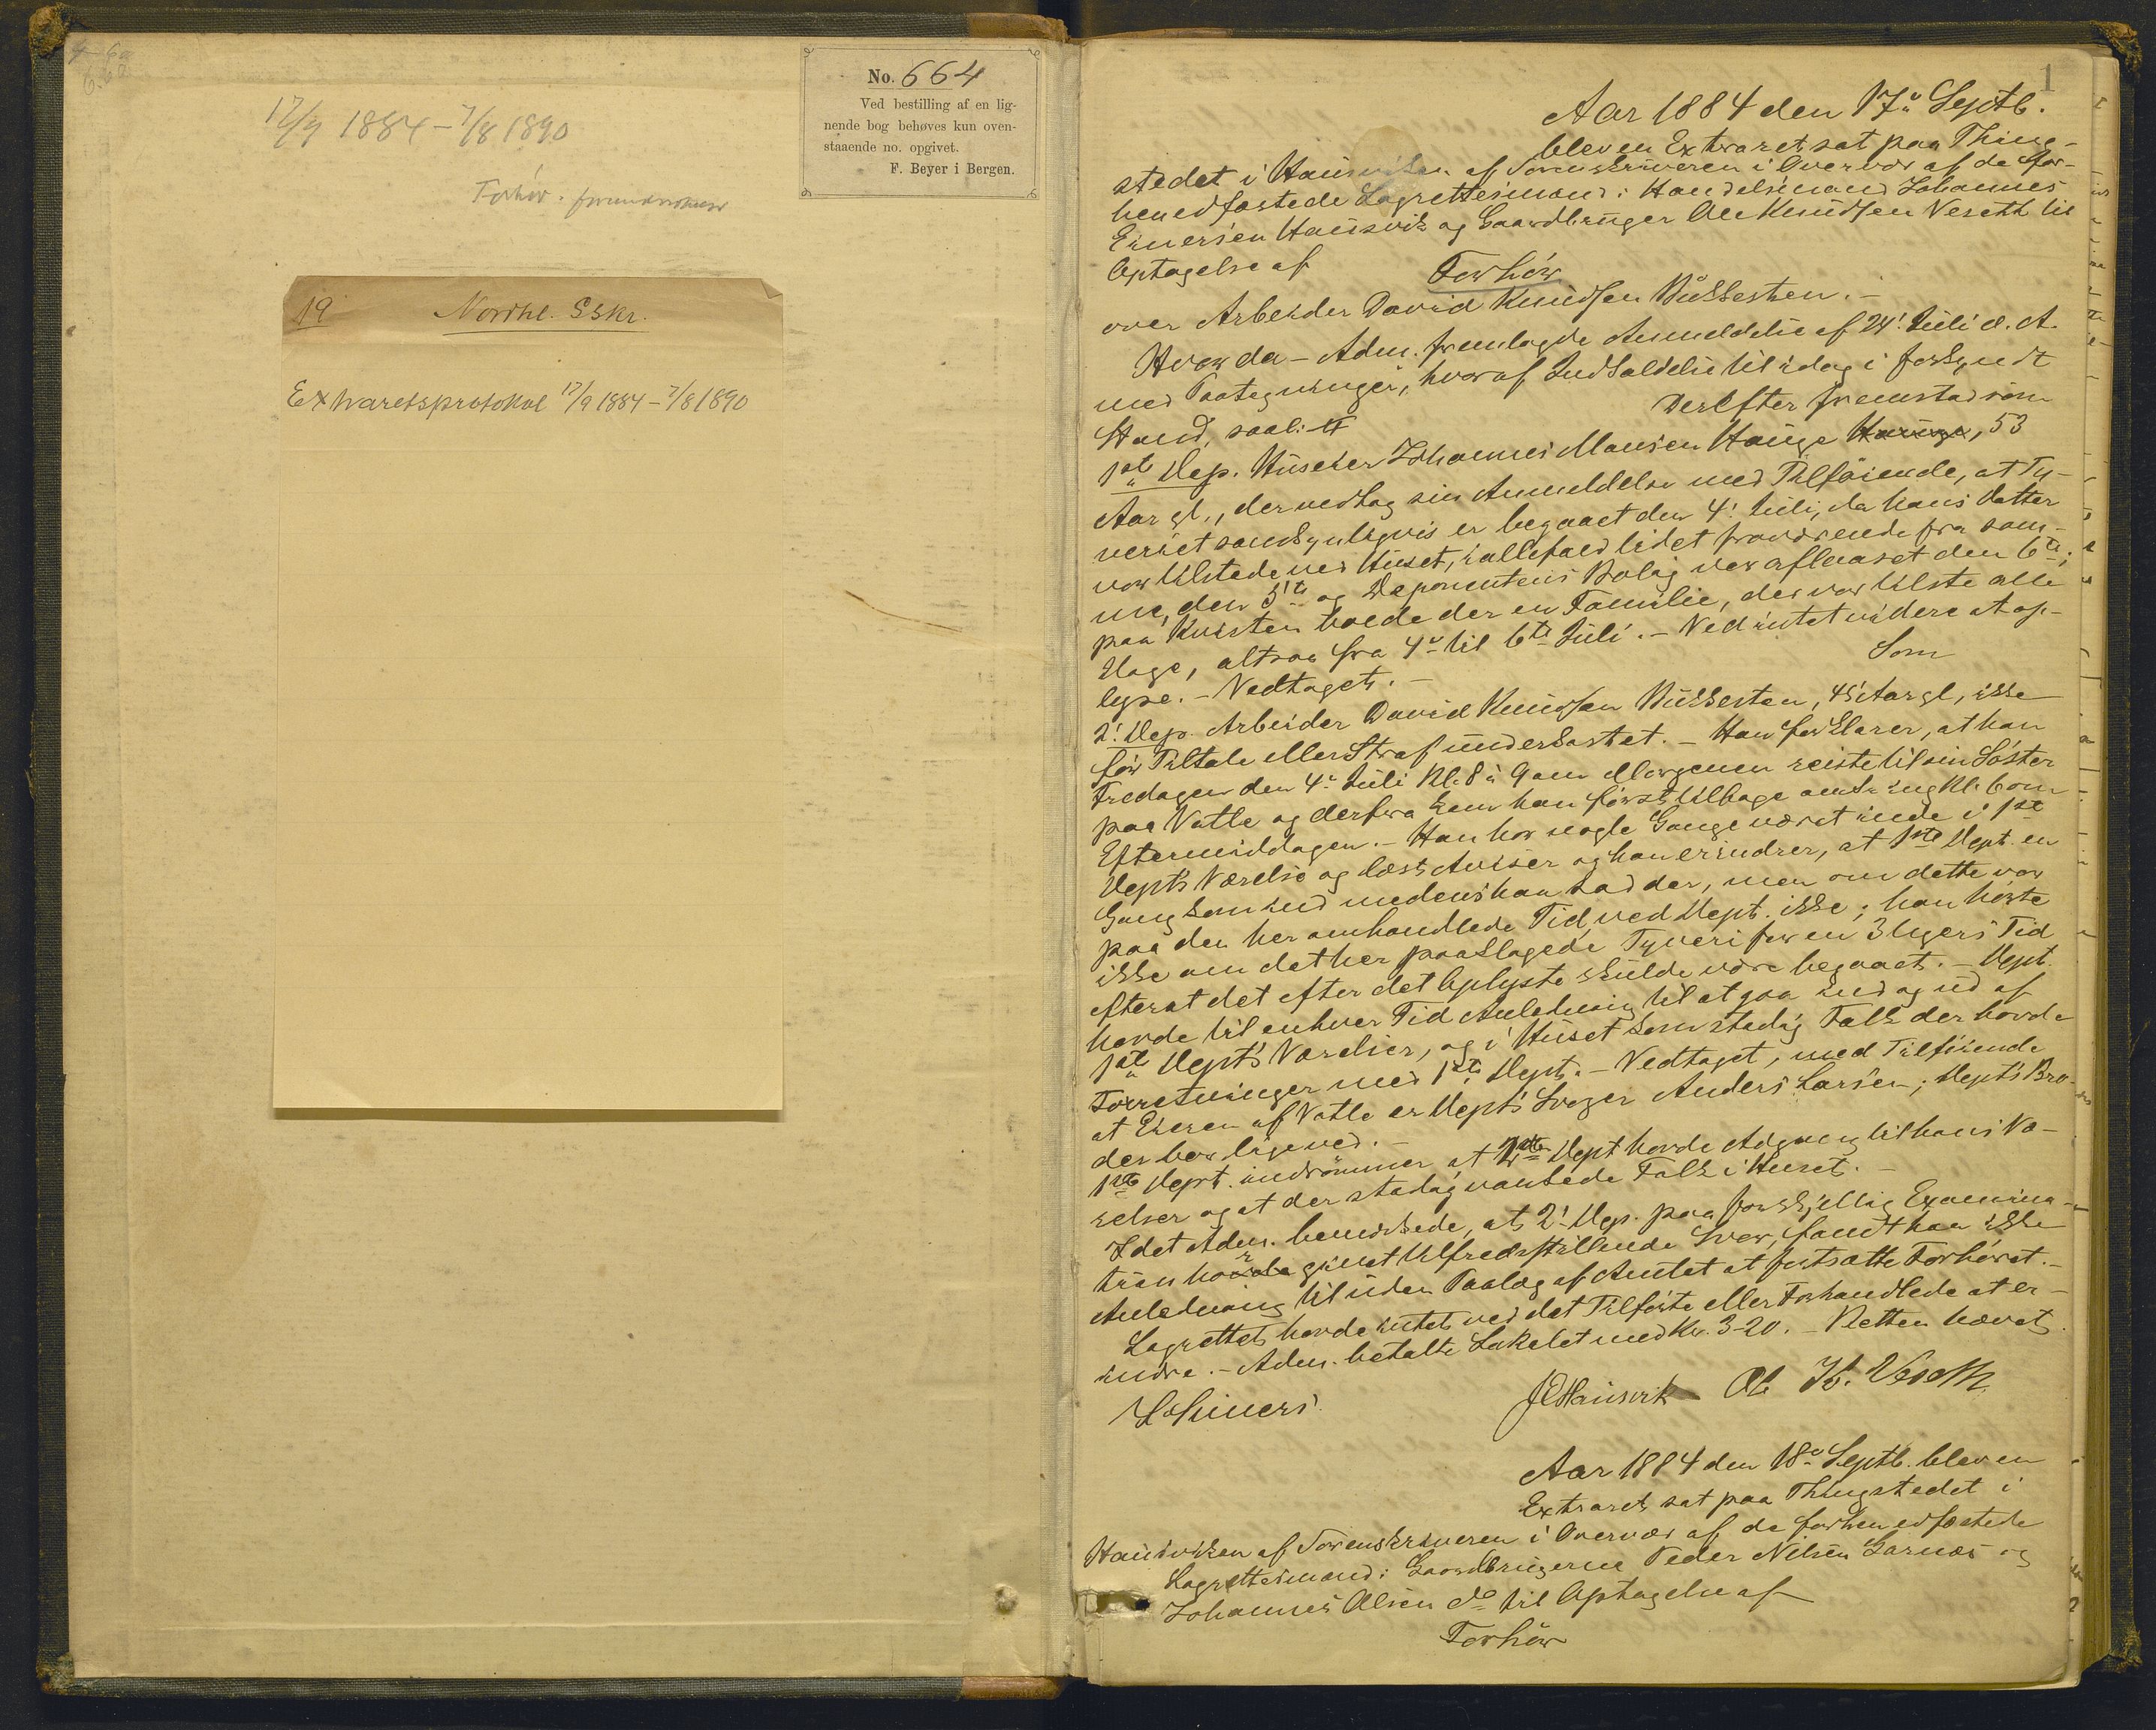 17/9 1884 - 7/8 1890
Forhør.
No. 664
Ved bestilling af en lig-
nende bog behøves kun oven-
staaende no. opgivet.
F. Beyer i Bergen.
19 Nordhl. Sskr.
Extraretsprotokol 17/9 1884 - 7/8 1890
1
Aar 1884 den 17de Septb.
blev en Extraret sat paa Thing-
stedet i Hausviken af Sorenskriveren i Overvær af de for-
hen edfæstede Lagrettesmænd: Handelsmand Johannes
Einersen Hausvik og Gaardbruger Ole Knudsen Veseth til
Optagelse af Forhør
over Arbeider David Knudsen Bukkesten. -
Hvor da - Adm. fremlagde Anmeldelse af 24! Juli d. A.
med Paategninger, hvoraf Indkaldelse til idag i forkyndt
Stand, saal:
Derefter fremstod som
1ste Dep. Huseier Johannes Monsen Hauge, 53
Aar gl., der vedtog sin Anmeldelse med Tilføiende, at Ty-
veriet sandsynligvis er begaaet den 4! Juli, da hans Datter
var tilstede ved Huset, i alle fald lidet fraværende fra sam-
me, den 5te og Deponentens Bolig var aflaaset den 6te;
paa Kvisten boede der en Familie, der var tilste alle
Dage, altsaa fra 4de til 6te Juli. - Ved intet videre at op-
lyse. - Vedtaget. -
Som
2! Dep. Arbeider David Knudsen Bukkesten, 45 Aar gl, ikke
før Tiltale eller Straf underkastet. - Han forklarer, at han
Fredagen den 4de Juli Kl. 8 à 9 om Morgenen reiste til sin Søster
paa Vatle og derfra kom han først tilbage omkring Kl. 6 om
Eftermiddagen. - Han har nogle Gange været inde i 1ste
Depts Værelse og læst Aviser og han erindrer, at 1ste Dept. en
Gang kom ind medens han sad der, men om dette var
paa den her omhandlede Tid, ved Dept. ikke; han hørte
ikke om det her paaklagede Tyveri før en 3 Ugers Tid
efterat det efter det Oplyste skulde være begaaet. - Dept.
havde til enhver Tid Anledning til at gaa ind og ud af
1ste Depts Værelser, og i Huset kom stadig Folk der havde
Forretninger med 1ste Dept. - Vedtaget, med Tilføiende
at Eieren af Vatle er Depts Svoger Anders Larsen; Depts Bro-
der bor ligeved. -
1ste Dept. indrømmer at 2den Dept havde Adgang til hans Væ-
relser og at der stadig vankede Folk i Huset. -
Idet Adm. bemærkede, at 2! Dep. paa forskjellig Examina-
tion har givet tilfredsstillende Svar, fandt han ikke
Anledning til uden Paalæg af Amtet at fortsætte Forhøret. -
Lagrettet havde intet ved det Tilførte eller Forhandlede at er-
indre. - Adm. betalte Lokalet med Kr. 3-20. - Retten hævet.
JEHausvik Ole K. Veseth
Aar 1884 den 18de Septb. blev en
Extraret sat paa Thingstedet i
Hausviken af Sorenskriveren i Overvær af de forhen edfæstede
Lagrettesmænd: Gaardbrugerne Peder Nilsen Garnæs og
Johannes Olsen do til Optagelse af
Forhør